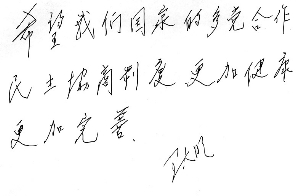 希望我们国家的多党合作
民主协商制度更加健康
更加完善.